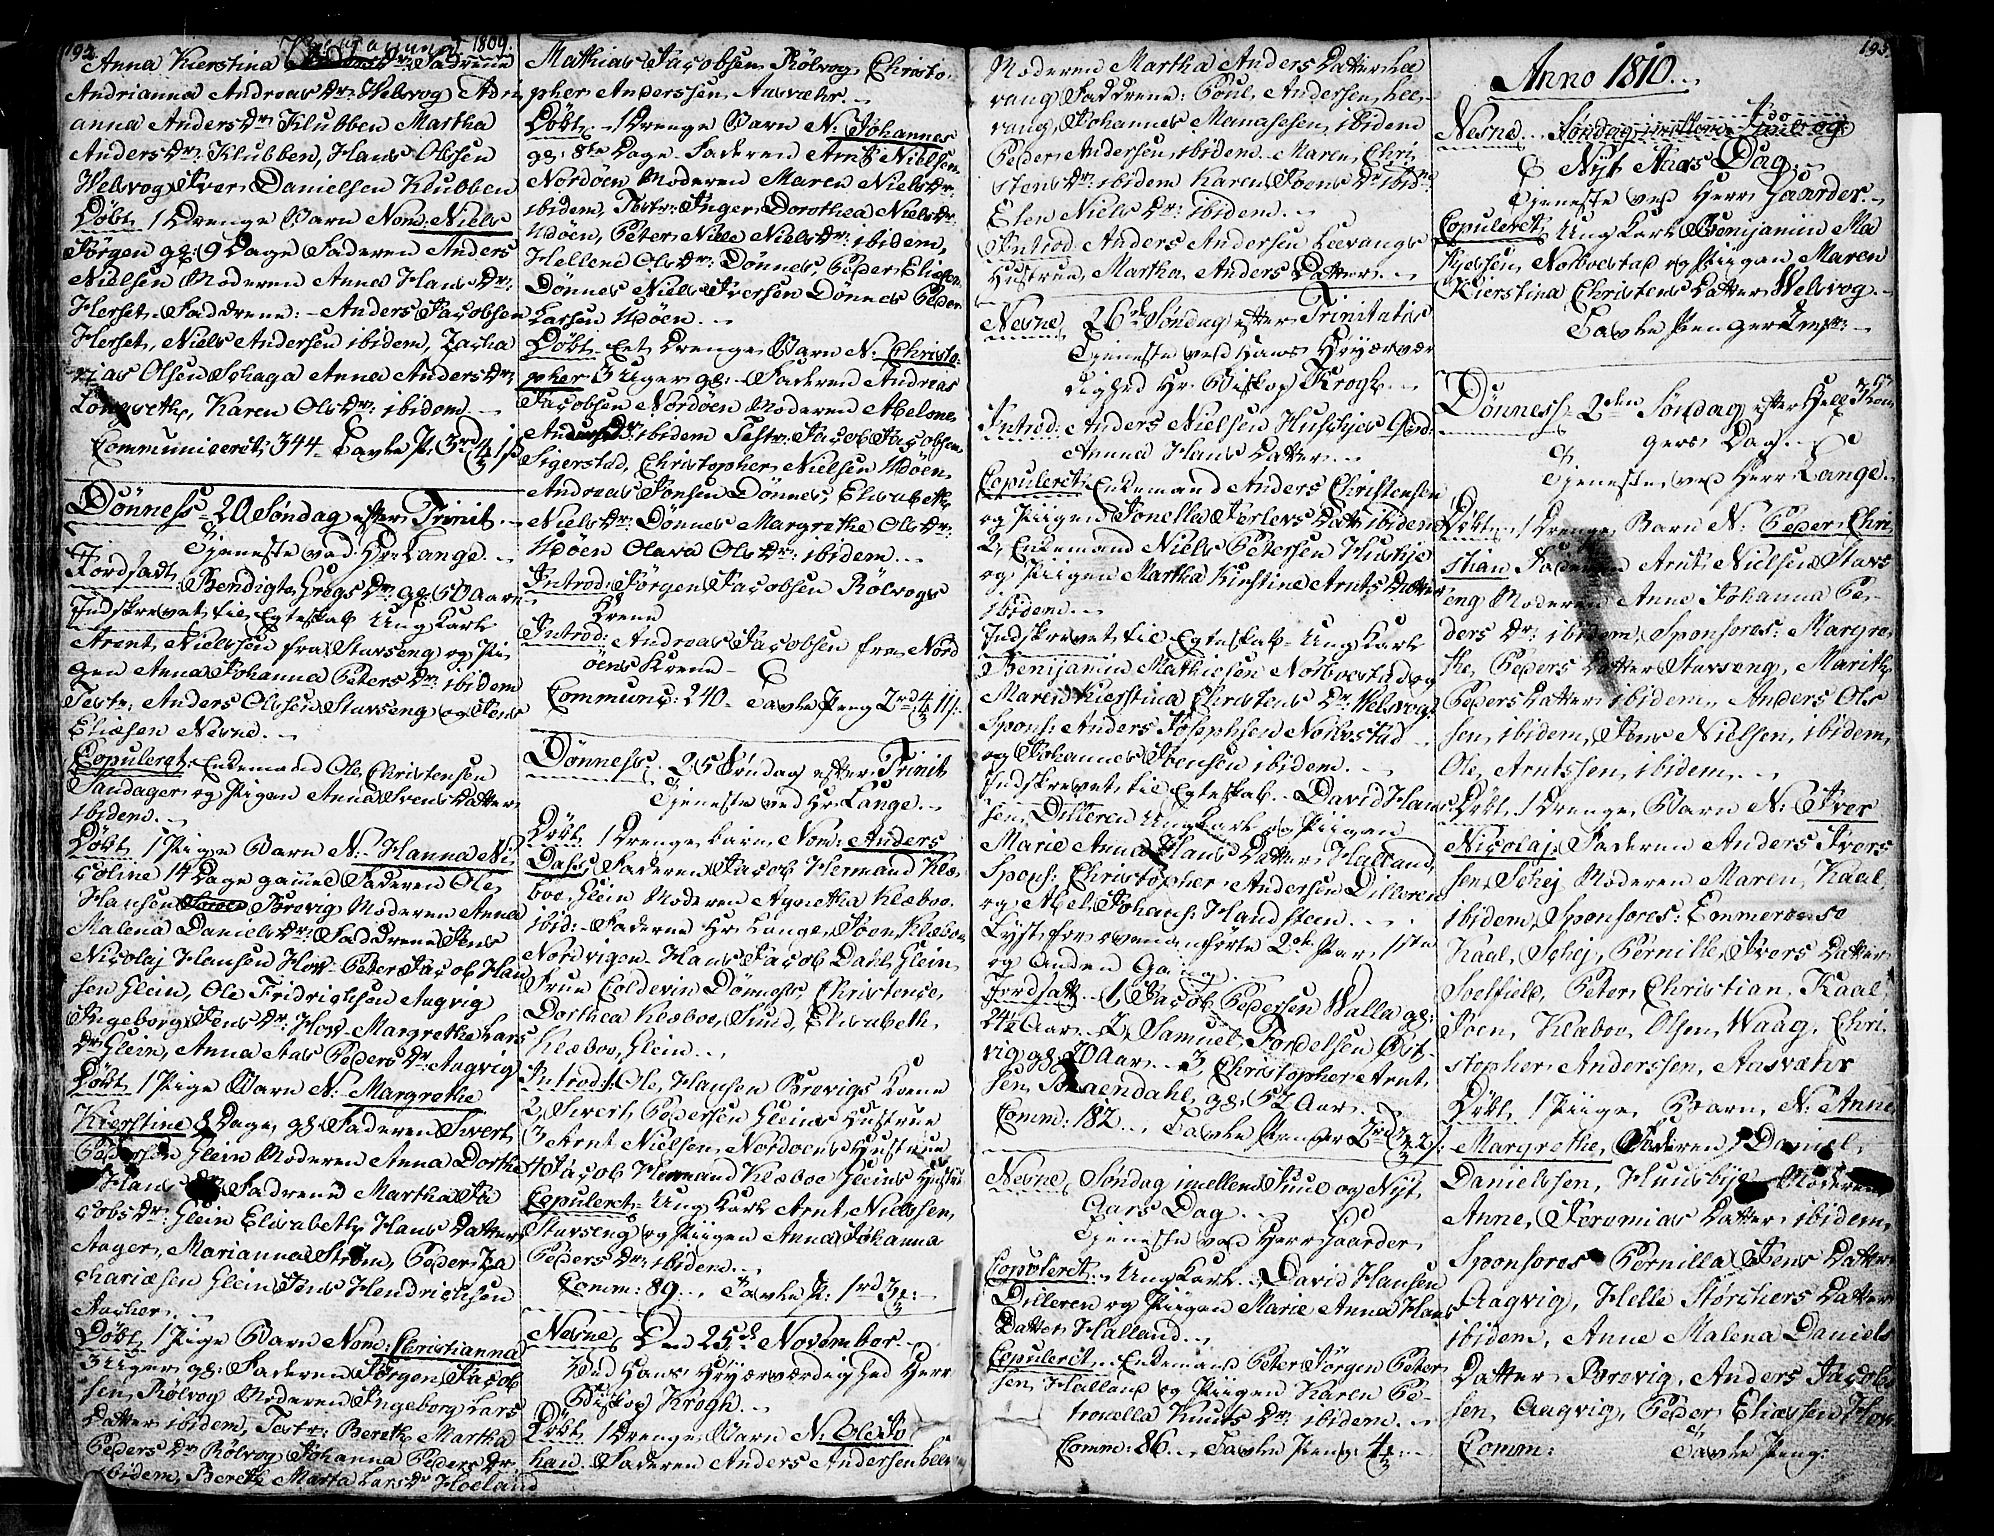 192
1809.
Anna Kierstina Fadrene
Andrianna Andreas Dr: Welvog Adri
anna Anders Dr Klubben Martha
Anders Dr: Klubben, Hans Olssen
Welvog Iver Danielsen Klubben
Døbt 1 Drenge Barn Nom: Niels
Jørgen gl: 9 Dage Faderen Anders
Nielsen Moderen Anna Hans Dr:
Herset. Faddrene: Anders Jacobsen
Herset, Niels Andersen ibidem, Zacha
rias Olsen Schaga Anna Anders Dr:
Longseth, Karen Ols Dr: ibidem
Communiceret: 344 Tavle P: 3rd
Dønness 20 Søndag efter Trinit
Tjeneste ved Hr: Lange
Jordsadt Bendigte Gregs Dr gl: 50 Aar
Indskrevet til Egteskab Ung Karl
Arent Nielssen fra Stavseng og Pi
gen Anna Johanna Peters Dr ibidem
Testr: Anders Olssen Stavseng og Jens
Eliæsen Nesne.
Copuleret Enkemand Ole Christensen
Sandager og Pigen Anna Svens Datter
ibidem.
Døbt 1 Pige Barn N: Hanna Ni
coline 14 Dage gammel Faderen Ole
Hansen Brevig Moderen Anna
Malena Daniels Dr: Faddrene Jens
Nicolaj Hansen Hov Peter Jacob Han
sen Glein, Ole Fridrichsen Aagvig
Ingeborg Jens Dr: Hov Margrethe Lars
Dr Glein, Anna Aas Peders Dr: Aagvig
Døbt 1 Pige Barn N: Margrethe
Kierstine 8 Dage gl: Faderen Sivert
Pedersen Glein Moderen Anna Dorthe
Hans Fadrene Martha Ja
cobs Dr: Glein Elisabeth Hans Datter
Aager, Marianna Strøm, Peder Za
chariæsen Glein Jens Hendrichsen
Aacher
Døbt 1 Pige Barn Nom: Christianna
3 Uger gl: Faderen Jørgen Jacob
sen Rølvog Moderen Ingeborg Lars
Datter ibidem, Testr: Bereth Martha
Peders Dr Rølvog Johanna Peders Dr
ibidem, Bereth Marta Lars Dr Hoeland
Mathias Jacobsen Rølvog, Christo
pher Anderssen Aasvær.
Døbt 1 Drenge Barn N: Johannes
gl: 8te Dage Faderen Arnt Nielsen
Nordøen Moderen Maren Niels Dr:
ibidem, Testr: Inger Dorothea Niels Dr:
Udøen, Peter Nille Niels Dr: ibidem,
Hellene Ols Dr: Dønnes, Peder Eliæsen
Dønnes Niels Iversen Dønnes Peder
Larsen Udøen
Døbt Eet Drenge Barn N: Christo
pher 3 Uger gl: Faderen Andreas
Jacobsen Nordøen Moderen Abelone
Anders Dr: ibidem Testr: Jacob Jacobsen
Sigerstad, Christopher Nielsen Udøen,
Andreas Jonsen Dønnes, Elisabeth
Niels Dr: Dønnes Margrethe Ols Dr:
Udøen Olava Ols Dr: ibidem.
Introd: Jørgen Jacobsen Rølvogs
Krene
Introd: Andreas Jacobsen fra Nord
øens Krene
Communc: 240 Tavle Peng 2rd
Dønness. 25 Søndag efter Trinit
Tjeneste ved Hr: Lange.
Døbt 1 Drenge barn Nom: Anders
Dass, Faderen Jacob Hermand Klæ
boe Glein Moderen Agnetha Klæboe
ibid: Faderne Hr Lange, Joen Klæboe
Nordvigen Hans Jacob Dahl Glein
Frue Coldevin Dønness, Christence
Dorthea Klæboe, Sund, Elisabeth
Klæboe, Glein.
Introd: Ole Hansen Brevigs Kone
2, Sivert Pedersen Gleins Hustrue
3 Arnt Nielsen Nordøens Hustrue
4 Jacob Hermand Klæboe Gleins Hustrue
Copuleret Ung Karl Arnt Nielssen,
Stavseng og Piigen Anna Johanna
Peders Dr: ibidem.
Comm: 89. Tavle P: 1rd
Nesne Den 25de November
Ved Hans Høyærværdighed Herr
Biskop Krogh.
Døbt 1 Drenge Barn N: Ole Jo
han Faderen Anders Andersen
Moderen Martha Anders Datter Lee
vang Faddrene: Poul Andersen Lee
vang, Johannes Manasesen, ibidem
Peder Andersen ibidem Maren Chri
stens Dr: ibidem Karen Joens Dr ibid:
Elen Niels Dr: ibidem.
Introd: Anders Andersen Leevangs
Hustrue, Martha, Anders Datter
Nesne, 26de Søndag efter Trinitatis
Tjeneste ved Hans Høyærvær
dighed Hr: Biskop Krogh
Introd: Anders Nielsen Husbyes
Anna Hans Datter.
Copuleret: Enkemand Anders Christensen
og Piigen Jonella Jerlevs Datt: ibidem
2, Enkemand Niels Petersen Husbye
og Piigen Martha Kirstine Arnts Datter
ibidem.
Indskrevet til Egteskab Ung Karl
Benjamin Mathiesen Nolvestad og
Maren Kierstina Christens Dr Welvog.
Spons: Anders Josephsen Nolvestad
og Johannes Joensen ibidem.
Indskrevet til Egteskab David Han
sen, Dilleren Ungkarl og Piigen
Marie Anna Hans Datter Halland,
Spons: Christopher Andersen Dilleren
og Abel Johans: Handsteen.
Lyst for ovenanførte 2de Par, 1ste
og anden Gang.
Jordsatt 1, Jacob Pedersen Walla gl:
24½ Aar. 2, Samuel Tordelsen Øst
vig gl: 20 Aar. 3, Christopher Arnt
sen gl: 52 Aar.
Comm: 182. Tavle Penger 2rd
Nesne, Søndag imellem Juul og Nyt
Aars Dag
Tjeneste ved Herr Gaarder.
Copuleret: Ung Karl, David Hansen
Dilleren og Piigen Marie Anna Hans
Datter Halland.
Copuleret: Enkemand Peter Jørgen Peter
sen, Halland og Piigen Karen Pe
tronella Knuts Dr ibidem.
Comm: 86. Tavle Peng: 4
193.
Anno 1810.
Nesne. Søndag imellem Juul og
Nyt Aars Dag
Tjeneste ved Herr Gaarder.
Copuleret, Ung Karl Benjamin Ma
thiessen, Nolvestad og Piigen Maren
Kierstina Christens Datter Welvog.
Tavle Penger
Dønness. 2den Søndag efter Hell: 3 Kon
gers Dag.
Tjeneste ved Herr Lange.
Døbt 1 Drenge Barn N: Peder Chri
stian Faderen Arnt Nielsen Stavs
eng Moderen Anne Johanna Pe
ders Dr: ibidem Sponsores: Margre
the, Peders Datter Stavseng, Marith
Peders Datter ibidem, Anders Ols
sen, ibidem, Jens Nielsen, ibidem,
Ole, Arntssen, ibidem.
Døbt, 1 Drenge Barn N: Iver
Nicolaj Faderen Anders Ivers
sen Schej Moderen Maren, Kaal
ibidem, Sponsores: Emmerense
Kaal, Schej, Pernille, Ivers Datter
Solfield, Peter Christian Kaal
Joen, Klæboe, Olsen, Waag, Chri
stopher Anderssen, Aasvær
Døbt 1 Piige Barn, N: Anne
Margrethe, Faderen Daniel
Danielssen, Huusbye Moderen
Anne, Jeremias Datter ibidem,
Sponsores Pernilla Jens Datter
Aagvig, Helle Störchers Datter
ibidem, Anne Malena Daniels
Datter Brevig, Anders Jacob
sen, Aagvig, Peder Eliæssen Hov
Comm: Tavle Peng: